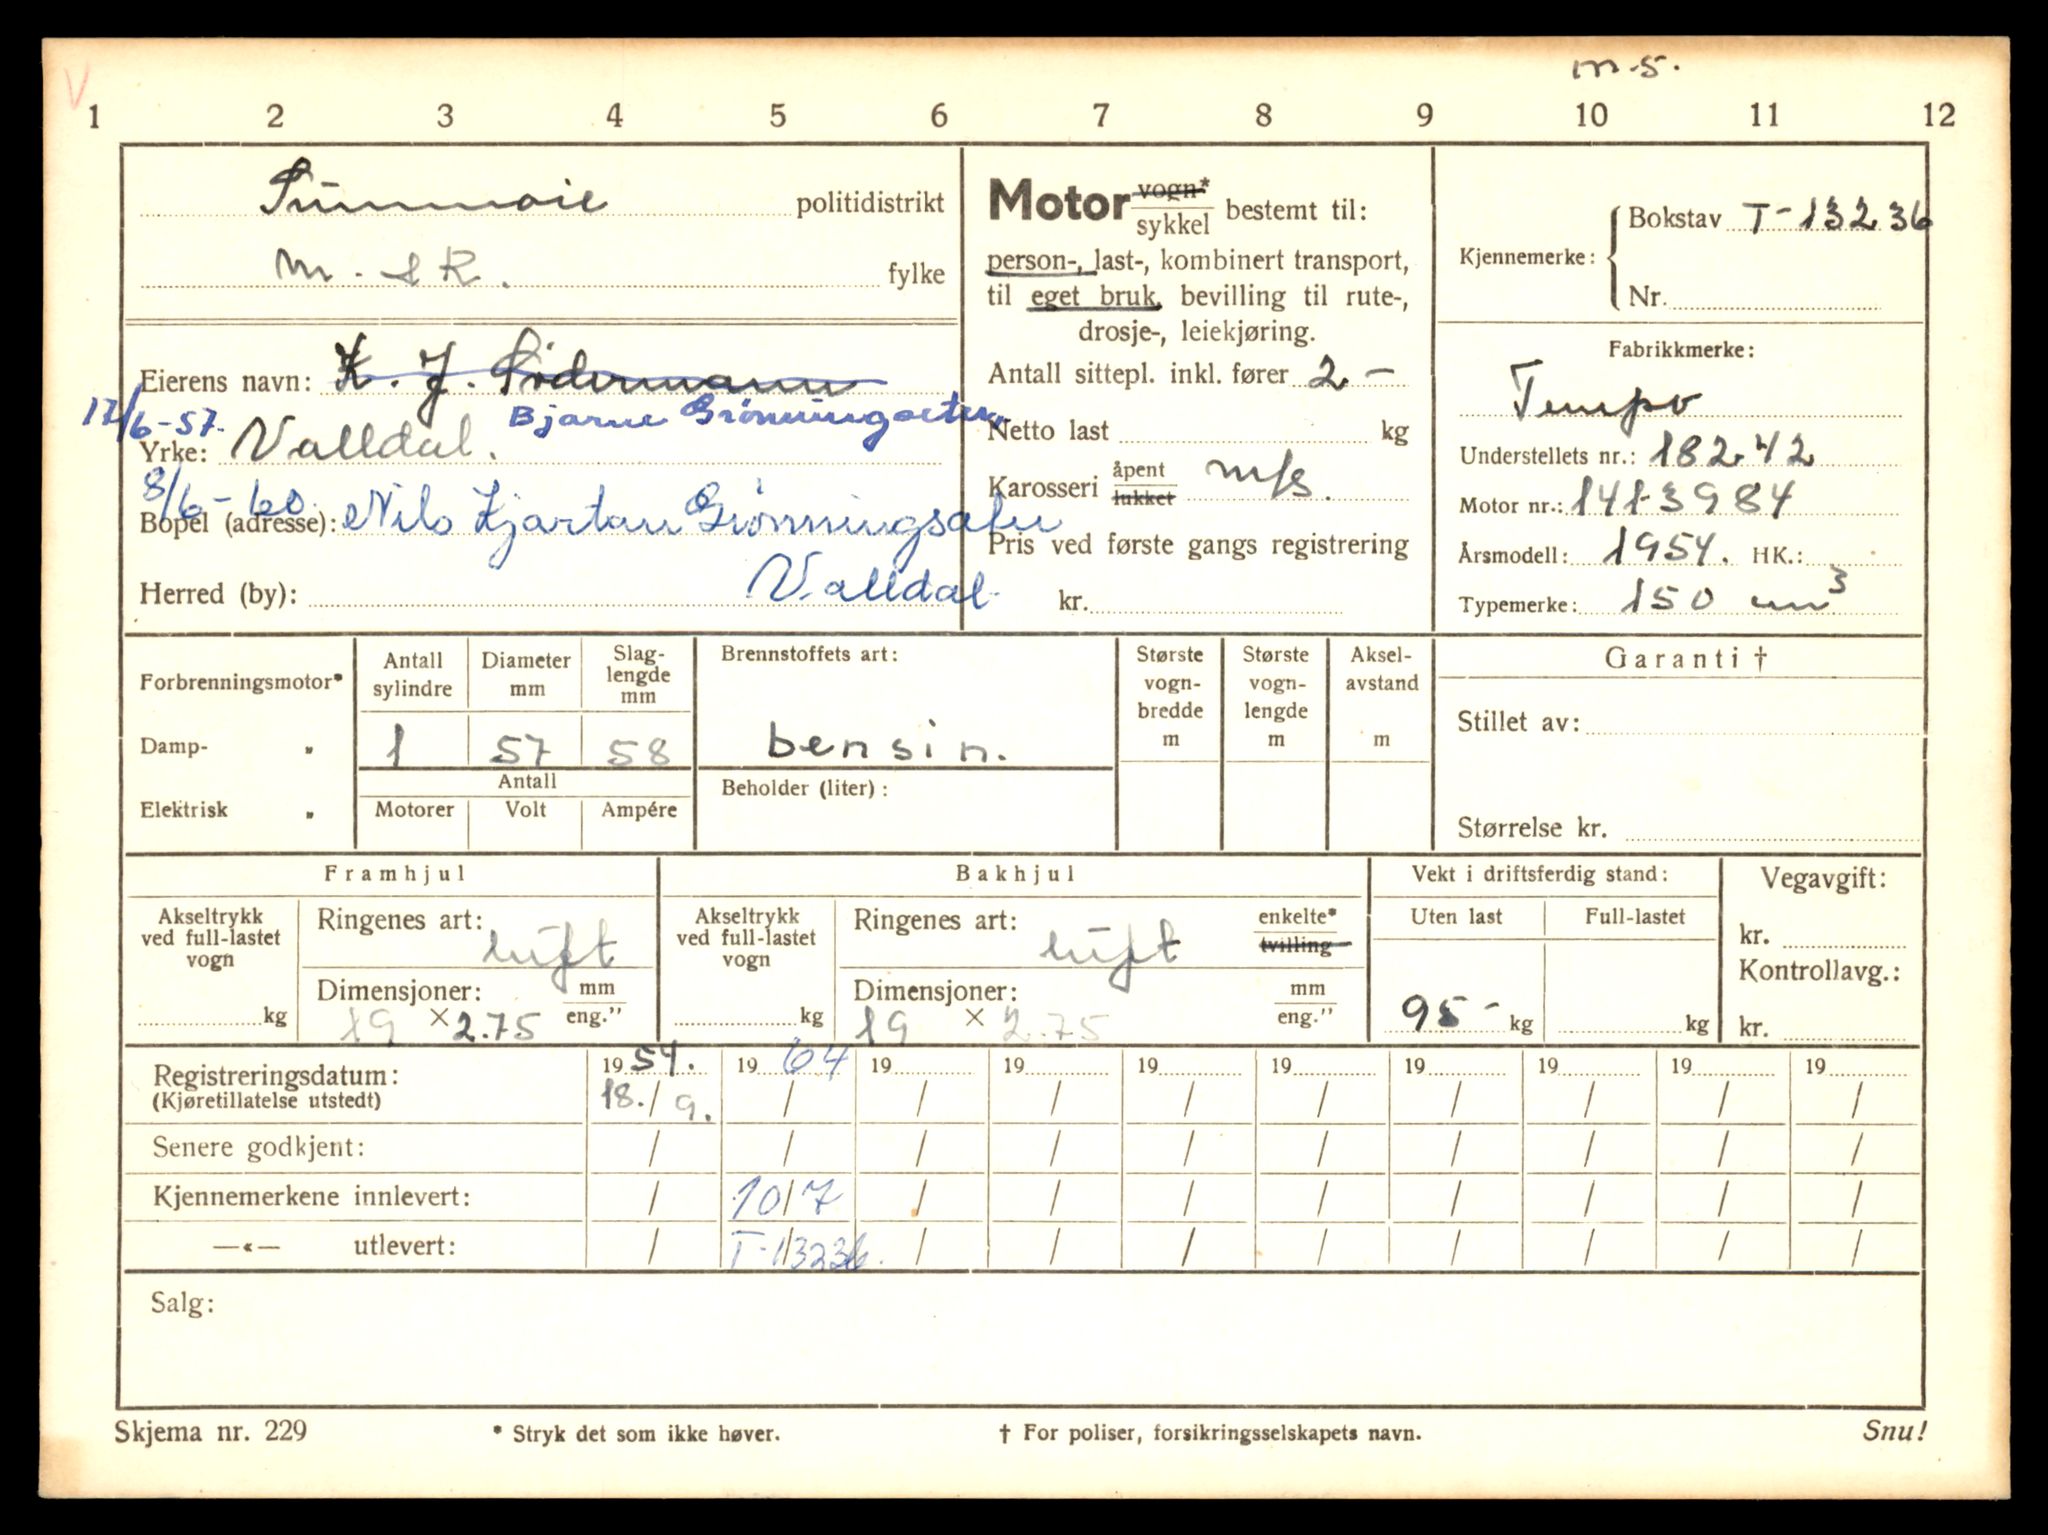 m-5.
V
1 2 3 4 5 6 7 8 9 10 11 12
Sunnmøre politidistrikt
M. &R. fylke
Eierens navn: K. J. Södermann
17/6-57. Bjarne Grönningsæter
Yrke: Valldal.
8/6-60.
Bopel (adresse): Nils Kjartan Grönningsæter
Valldal
Herred (by):
Motor vogn*
sykkel bestemt til:
person-, last-, kombinert transport,
til eget bruk, bevilling til rute-,
drosje-, leiekjøring.
Antall sittepl. inkl. fører 2 -
Netto last kg
Karosseri åpent
lukket m/s.
Pris ved første gangs registrering
kr.
Kjennemerke: Bokstav T-13236
Nr.
Fabrikkmerke:
Tempo
Understellets nr.: 18242
Motor nr.: 1413984
Årsmodell: 1954. HK.:
Typemerke: 150 cm³
Forbrenningsmotor*
Damp- "
Elektrisk "
Antall sylindre
Diameter mm
Slag-
lengde
mm
1 57 58
Antall
Motorer Volt Ampére
Brennstoffets art:
bensin.
Beholder (liter):
Største
vogn-
bredde
m
Største
vogn-
lengde
m
Aksel-
avstand
m
Garanti †
Stillet av:
Størrelse kr.
Framhjul
Akseltrykk
ved full-lastet
vogn
kg
Ringenes art:
luft
Dimensjoner: mm
19 × 2.75 eng."
Bakhjul
Akseltrykk
ved full-lastet
vogn
kg
Ringenes art: enkelte*
luft tvilling
Dimensjoner: mm
19 × 2.75 eng."
Vekt i driftsferdig stand:
Uten last Full-lastet
95 - kg kg
Vegavgift:
kr.
Kontrollavg.:
kr.
Registreringsdatum: 1954. 1964 19 19 19 19 19 19 19 19
(Kjøretillatelse utstedt) 18./9. / / / / / / / / /
Senere godkjent: / / / / / / / / / /
Kjennemerkene innlevert: / 10/7 / / / / / / / /
—«— utlevert: / T-13236. / / / / / / / /
Salg:
Skjema nr. 229 * Stryk det som ikke høver. † For poliser, forsikringsselskapets navn. Snu!